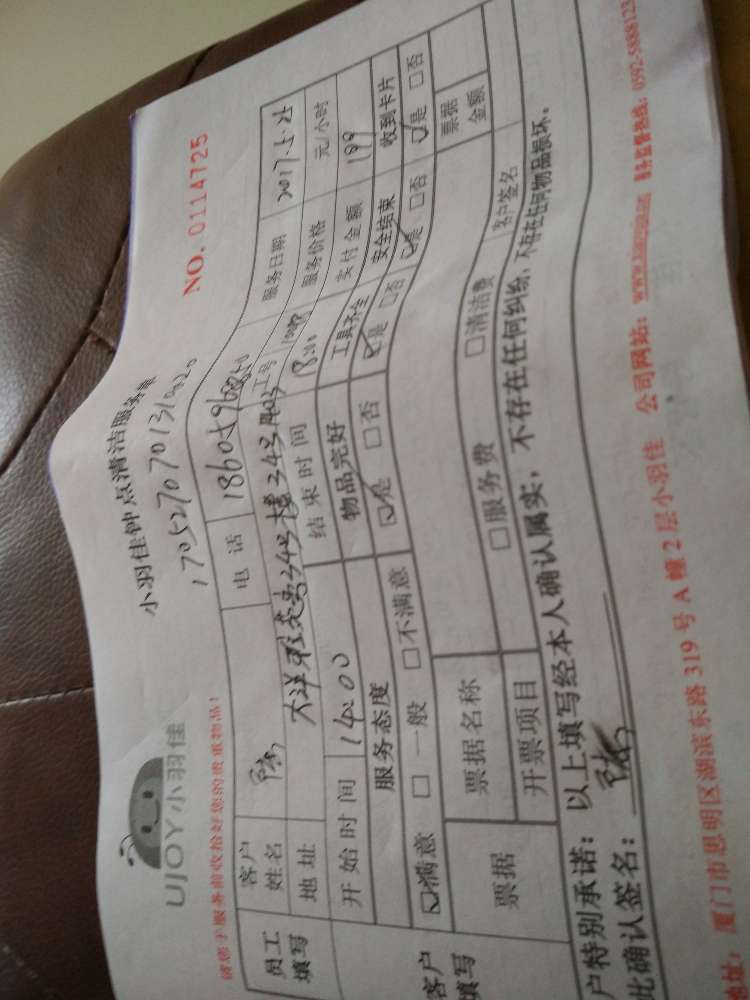 UJOY小羽佳
小羽佳钟点清洁服务单
NO. 0114725
请您于服务前收拾好您的贵重物品！
员工填写
客户姓名
电话
服务日期 2017.5.25
地址
工号
服务价格 元/小时
开始时间 14:00 结束时间 18:00 实付金额
客户填写
服务态度 物品完好 工具齐全 安全结束 收到卡片
☑满意 □一般 □不满意 ☑是 □否 ☑是 □否 ☑是 □否 ☑是 □否
票据
票据名称
票据金额
开票项目 □服务费 □清洁费 客户签名
户特别承诺：以上填写经本人确认属实，不存在任何纠纷，不存在任何物品损坏。
此确认签名：
地址：厦门市思明区湖滨东路319号A幢2层小羽佳 公司网站： 服务监督热线：0592-5888123